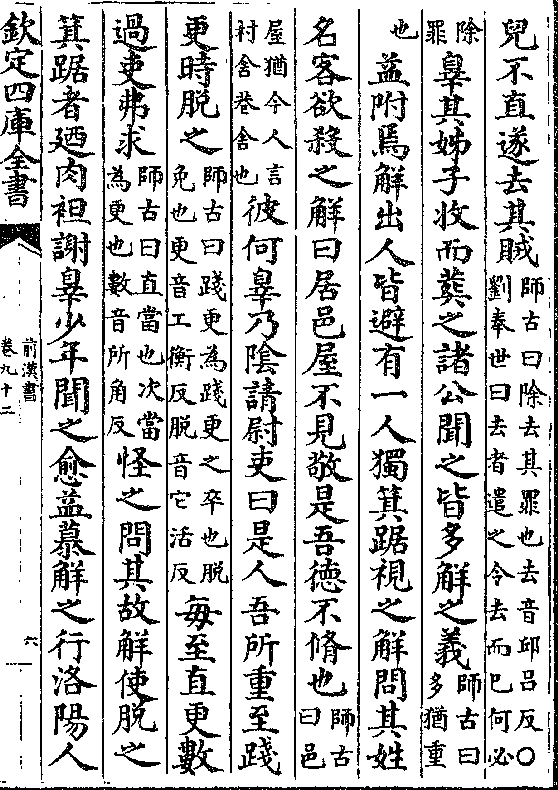 兒不直遂去其賊師古曰除去其罪也去音邱呂反○劉奉世曰去者遣之令去而已何必
除罪辠其姊子收而葬之諸公聞之皆多解之義師古曰多猶重
也益附焉解出人皆避有一人獨箕踞視之解問其姓
名客欲殺之解曰居邑屋不見敬是吾德不脩也師古曰邑
屋猶今人言村舍巷舍也彼何辠乃陰請尉吏曰是人吾所重至踐
更時脫之師古曰踐更為踐更之卒也脫免也更音工衡反脫音它活反每至直更數
過吏弗求師古曰直當也次當為更也數音所角反怪之問其故解使脫之
箕踞者廼肉袒謝辠少年聞之愈益慕解之行洛陽人
欽定四庫全書
前漢書
卷九十二
六